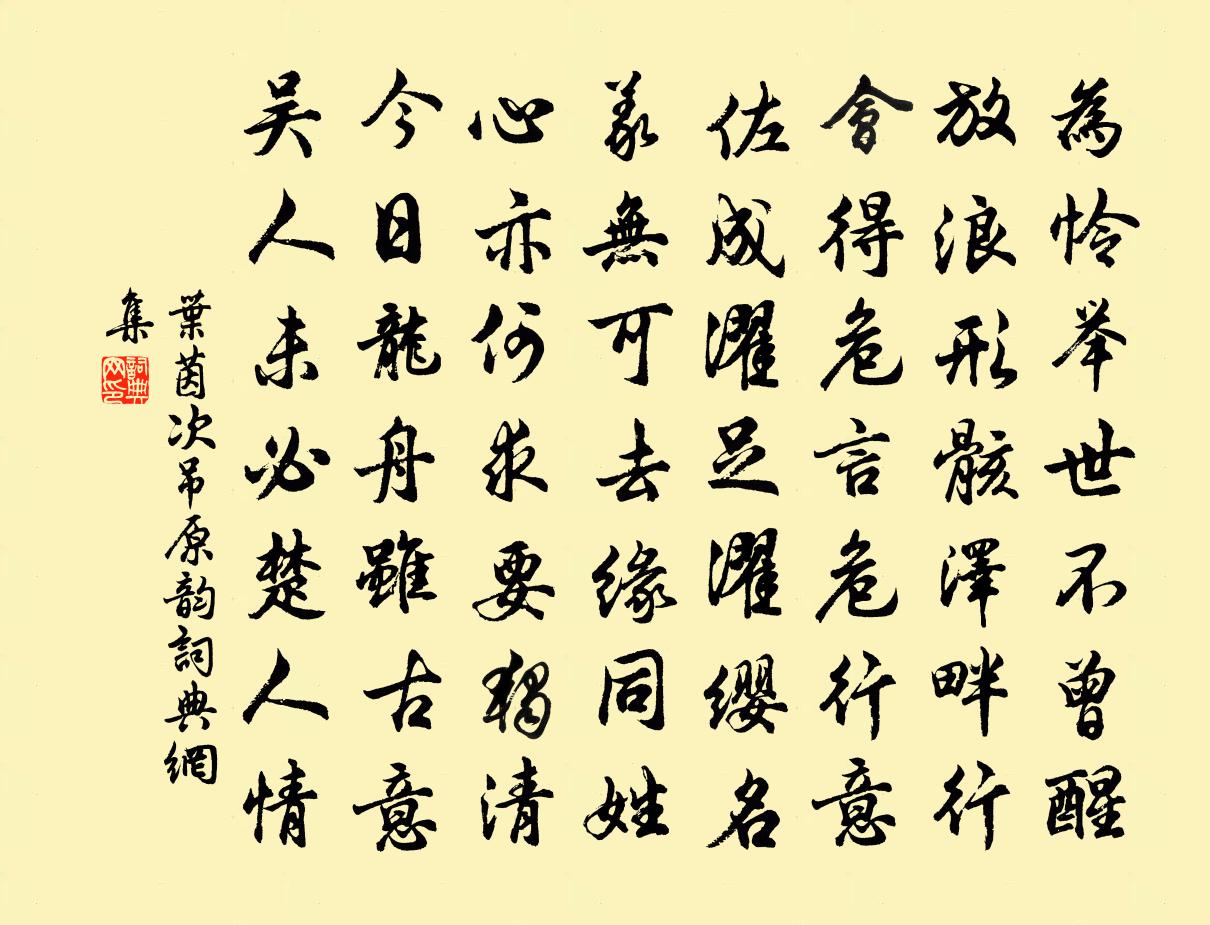 為怜举世不曾醒
放浪形骸澤畔行
會得危言危行意
佐成濯足濯纓名
義無可去缘同姓
心亦何求要獨清
今日龍舟雖古意
吴人未必楚人情
葉茵次吊原韵詞典網
集
詞典网印